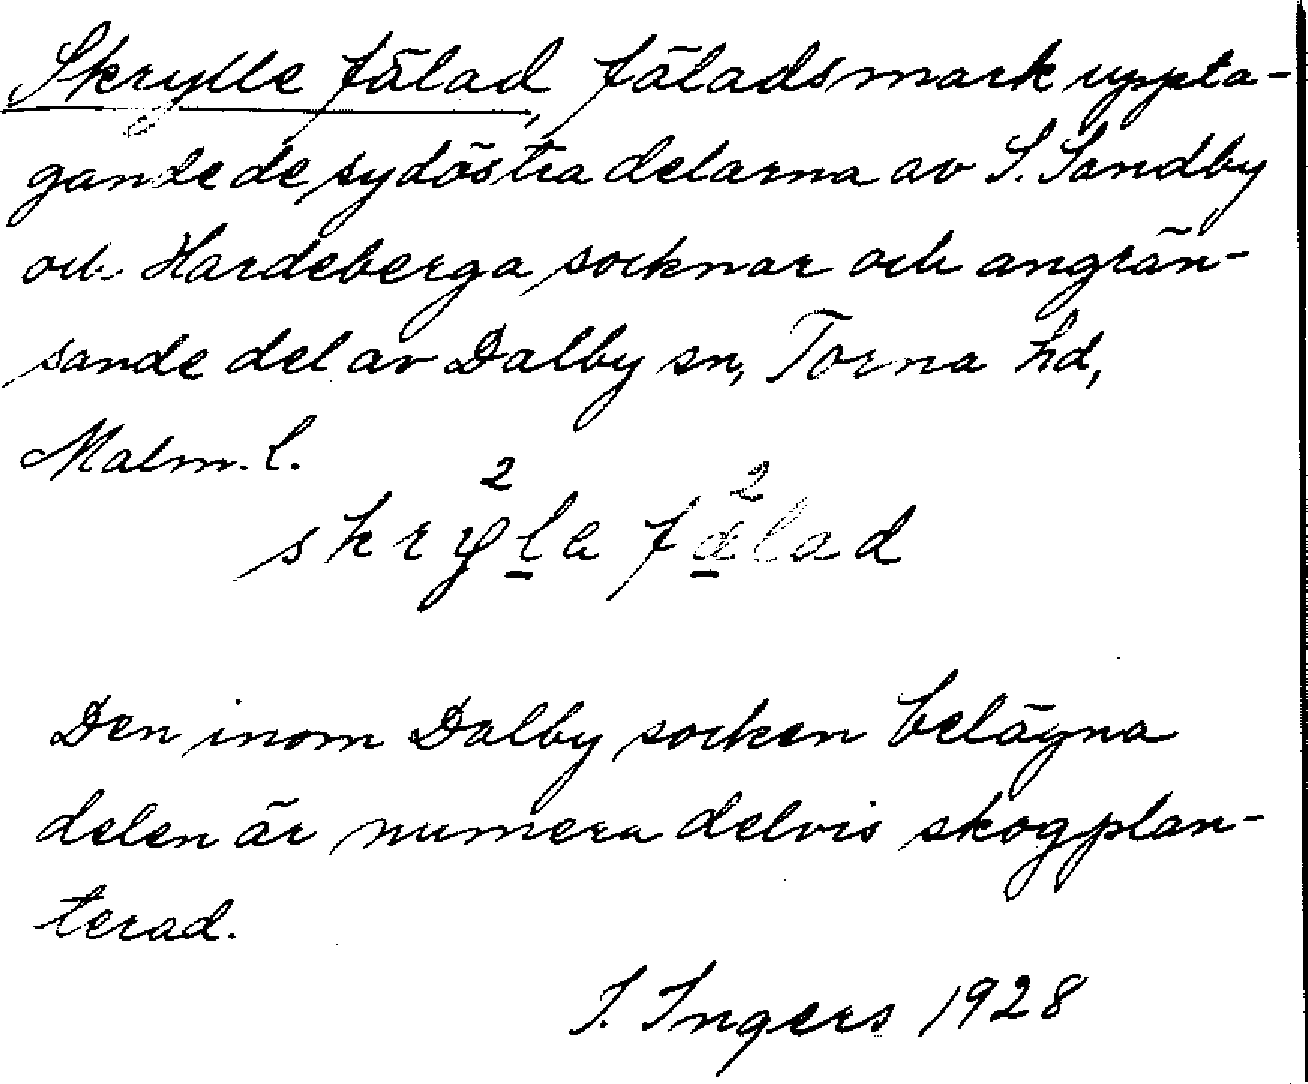 Skrylle fälad, fäladsmark uppta-
gande de sydöstra delarna av S. Sandby
och Hardeberga socknar och angrän-
sande del av Dalby sn, Torna hd,
Malm. l.
2 2
skryla fälad
Den inom Dalby socken belägna
delen är numera delvis skogplan-
terad.
I. Ingers 1928